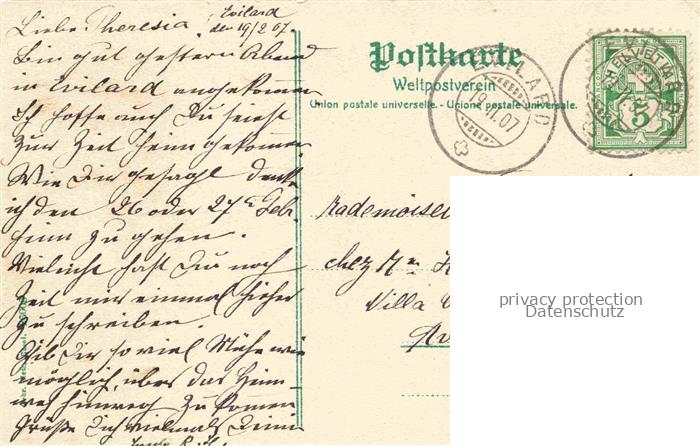 Evilard
den 19/2 07.
Liebe Theresia
Bin gut gestern Abend
in Evilard angekommen
Ich hoffe auch Du seiest
zur Zeit heimgekommen.
Wie Dir gesagt denke
ich den 26 oder 27 Feb.
heim zu gehen.
Vieleicht hast Du noch
Zeit mir einmal hieher
zu schreiben.
Gib Dir so viel Mühe wie
möglich, über das Heim-
weh hinweg zu komen
Grüße Dich vielmals Deine
Postkarte
Weltpostverein
Union postale universelle. - Unione postale universale.
EVILARD
19.II.07
HELVETIA
5
Mademoisel
chez Mr
Villa
privacy protection
Datenschutz